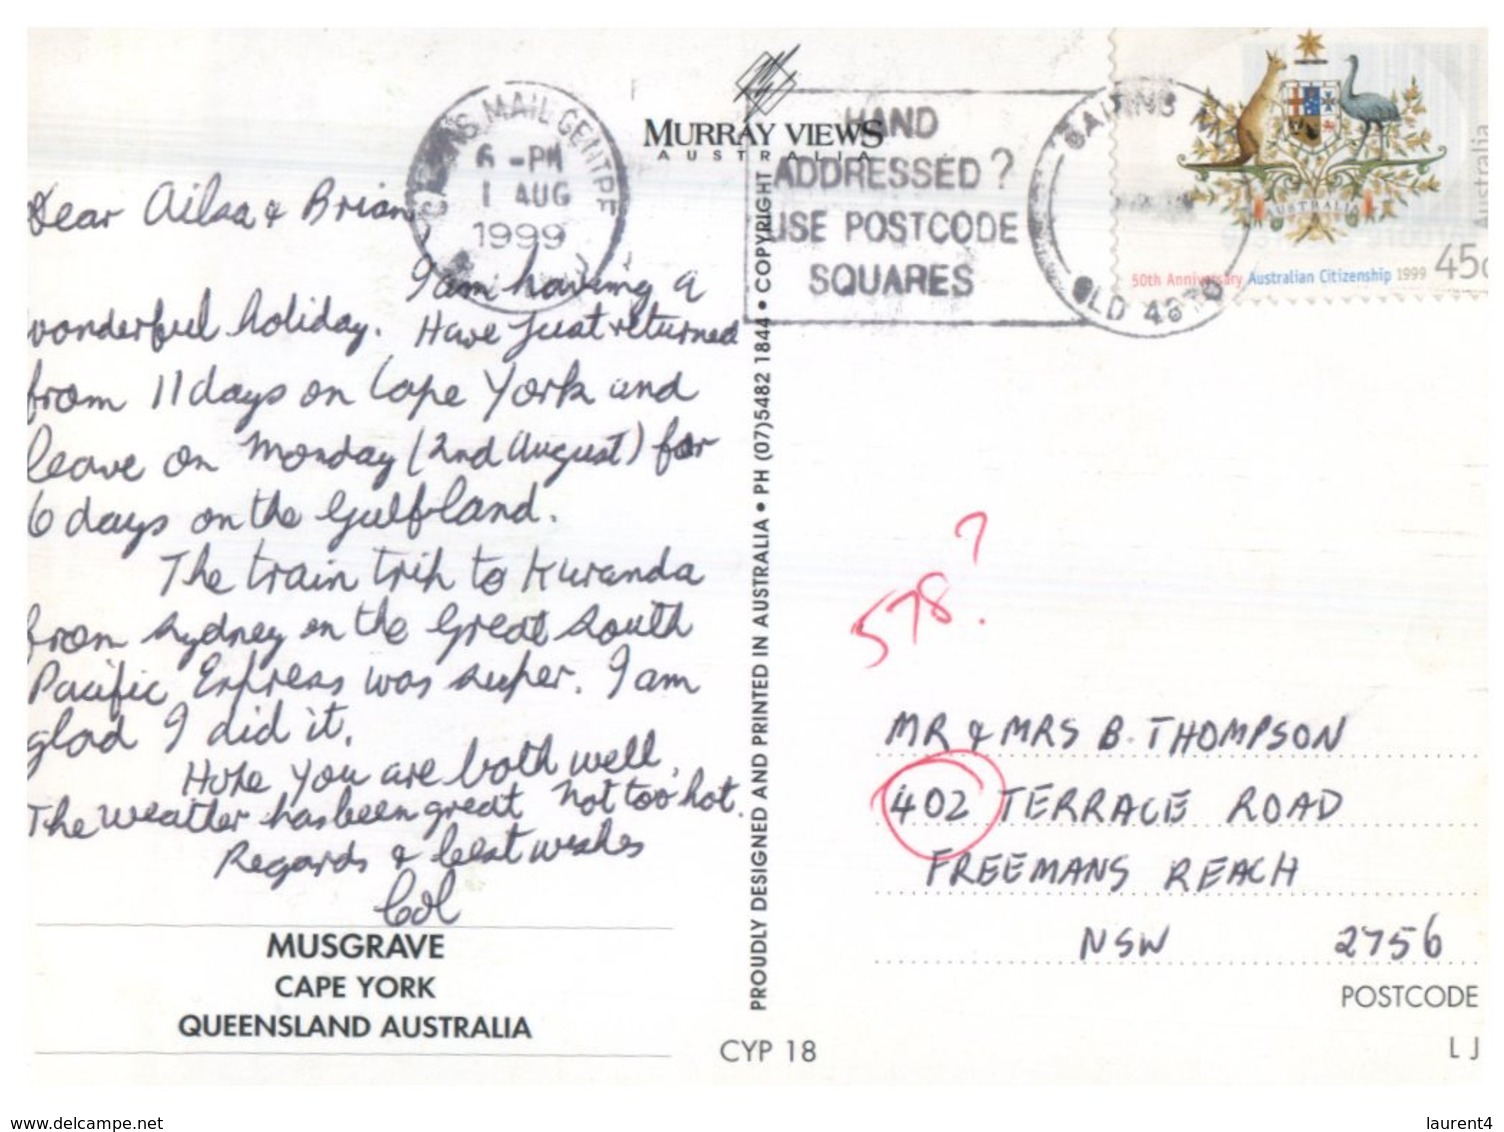 Dear Ailsa & Brian
I am having a
wonderful holiday. Have just returned
from 11 days on Cape York and
leave on Monday (2nd August) for
6 days on the Gulfland.
The train trip to Kuranda
from Sydney on the Great South
Pacific Express was super. I am
glad I did it.
Hope you are both well.
The weather has been great not too hot.
Regards & best wishes
Col
MUSGRAVE
CAPE YORK
QUEENSLAND AUSTRALIA
CAIRNS MAIL CENTRE
6 - PM
1 AUG
1999
MURRAY VIEWS
AUSTRALIA
HAND
ADDRESSED?
USE POSTCODE
SQUARES
CAIRNS
QLD 4870
AUSTRALIA
50th Anniversary Australian Citizenship 1999 45c
Australia
PROUDLY DESIGNED AND PRINTED IN AUSTRALIA • PH (07)5482 1844 • COPYRIGHT
578?
MR & MRS B. THOMPSON
402 TERRACE ROAD
FREEMANS REACH
NSW 2756
POSTCODE
CYP 18
LJ
www.delcampe.net
laurent4